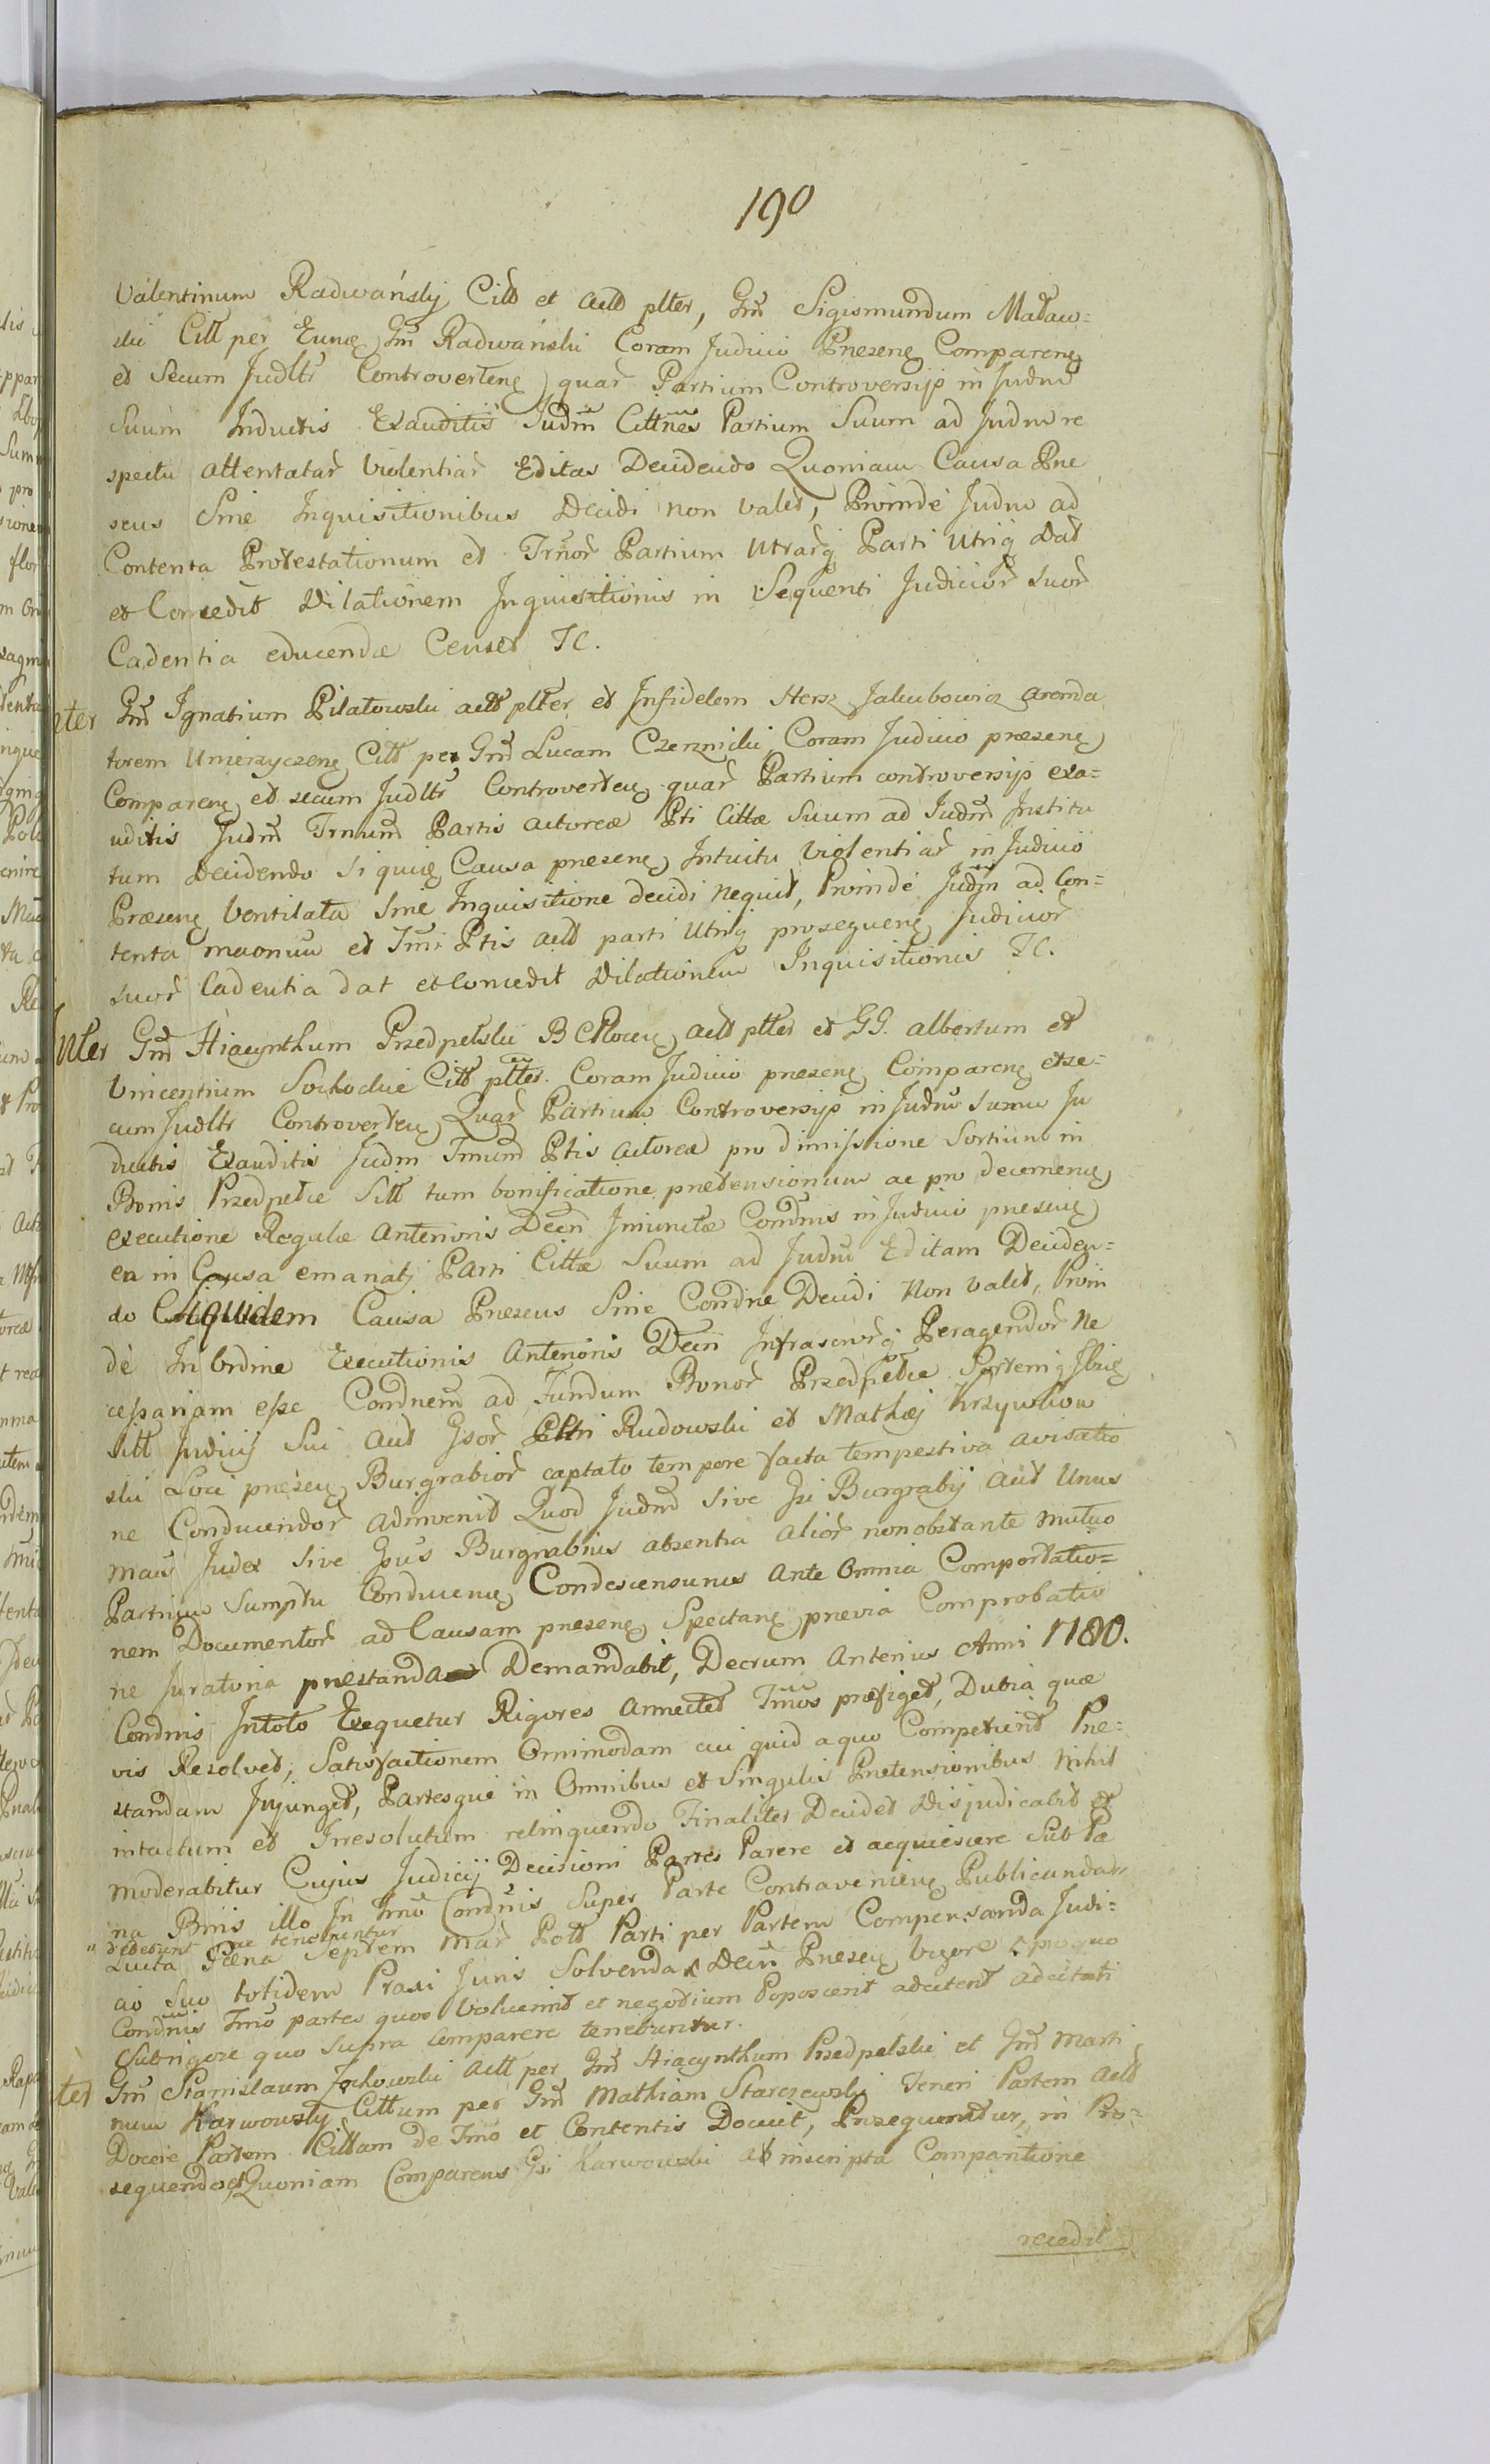 190
Valentinum Radwański Citt et actt plter, Gm Sigismundum Mataw=
ski Citt per Eund Gm Radwański Coram Judicio Præsenꝫ Comparenꝫ
et Secum Judltr Controvertenꝫ quar Partium Controversijs in Judm
Suum Inductis Exauditis Judm Cittnes Partium Suum ad Judm re
spectu attentatar Violentiar Editas Decidendo Quoniam Causa Præ
sens Sine Inquisitionibus Decidi non valet, Proinde Judm ad
Contenta Protestationum et Trnor Partium Utrarq Parti Utriq Dat
et Concedit Dilationem Inquisitionis in Sequenti Judicior suor
Cadentia educendæ Censet Tc.
Inter Gm Ignatium Pilatowski actt plter et Infidelem Hersz Jakubowicz arenda
torem Umierzyczenꝫ Citt per Gm Lucam Czerznicki Coram Judicio præsenꝫ
Comparenꝫ et secum Judltr Controvertenꝫ quar Partium controversijs exa=
uditis Judm Trmum Partis actoreæ Pti Cittæ Suum ad Judm Institu
tum decidendo Siquid Causa præsenꝫ Intuitu Violentiar in Judicio
Præsenꝫ Ventilata Sine Inquisitione decidi nequit, Proinde Judm ad Con=
tenta et Tmi Ptis actt parti Utriq prosequenꝫ Judicior
suor Cadentia dat et Concedit Dilationem Inquisitionis Tc.
Inter Gm Hiacynthum Przedpełski B C Plocenꝫ actt plter et GG. albertum et
Vincentium Sochockie Citt pltes. Coram Judicio præsenꝫ Comparenꝫ et se=
cum Judltr Controvertenꝫ Quar Partium Controversijs in Judm Suum In
ductis Exauditis Judm Tmum Ptis actoreæ pro dimissione Sortium in
Bonis Przedpełce Sitt tum bonificatione prætensionum ac pro decernenꝫ
executione Regulæ Anterioris Decti Iniunctæ Condnis in Judicio præsenꝫ
ea in Causa emanatj Parti Cittæ Suum ad Judm Editam Deciden=
do Siquidem Causa Præsens Sine Condne Decidi Non valet, Proin
de In Ordine Executionis Anterioris Decti Infrascriptq Peragendor Ne
cessariam esse Condnem ad Fundum Bonor Przedpełce Sortemq Ibid
sitt Judicij Sui aut Gsor Ptri Rudowski et Mathej Krzywkow
ski Loci præsenꝫ Burgrabior captato tempore facta tempestiva avisatio
ne Conducendor adinvenit Quod Judm Sive Jsi Burgrabij aut Unus
maus Judex Sive Gsus Burgrabius absentia alior non obstante mutuo
Partium Sumptu Conducenꝫ Condescensurus Ante Omnia Comportatio=
nem Documentor ad Causam præsenꝫ Spectanꝫ prævia Comprobatio
ne Juratoria præstanda Demandabit, Decrum Anterius Anni 1780.
Condnis Intoto Exequetur Rigores Annectet Tmos præfiget, Dubia quæ
vis Resolvet, Satisfactionem Omnimodam cui quid a quo Competierit Præ=
standam Injunget, Partesque in Omnibus et Singulis Prætensionibus Nihil
intactum et Irresolutum relinquendo Finaliter Decidet Disjudicabit et
moderabitur Cujus Judicij Decisioni Partes Parere et acquiescere Sub Pæ
na Bnis illo In Tmo Condnis Super Parte Contravenienꝫ Publicandar
debebunt ac tenebuntur
Lucta Pæna Septem Mar Poll Parti per Partem Compensanda Judi=
cio Suo totidem Praxi Juris Solvenda Decti Præsenꝫ Vigore pro quo
Condnis Tmo partes quos Voluerint et negotium Poposcerit adcitent adcitati
Subrigore quo supra Comparere tenebuntur.
Inter Gm Stanislaum Jochowski actt per Gm Hiacynthum Przedpełski et Gm Marti
num Karwowski Cittum per Gm Mathiam Starczewski Teneri Partem actt
Docere Partem Cittam de Tmo et Contentis Docuit, Prosequentur, in Pro=
sequendo Quoniam Comparens Gsi Karwowski ab inscripta Comparitione
recedit